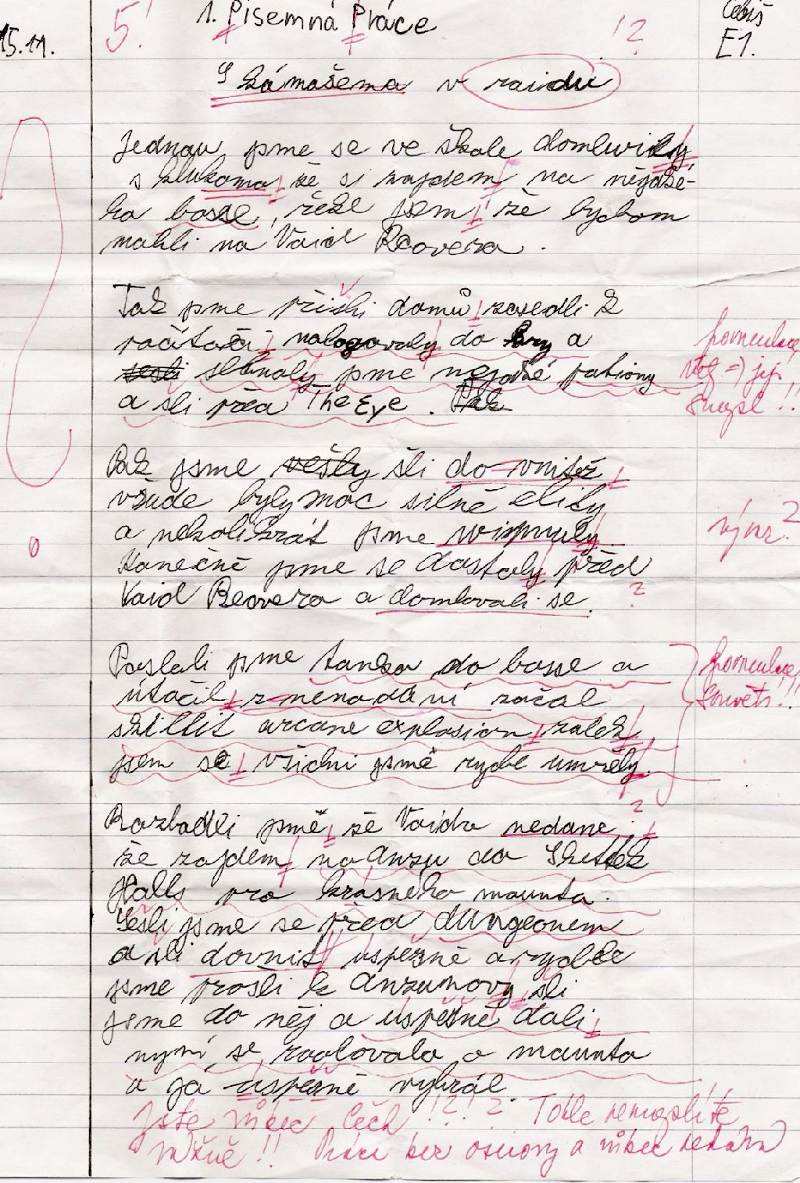 15.11.
5!
1. Písemná Práce
!?
E1.
S kámošema v raidu
Jednou jsme se ve škole domluvily
s klukama že si zajdem na nějaké-
ho bosse, řekl jsem že bychom
mohli na Void Reavera.
Tak jsme přišli domů zasedli k
počítači nalogovaly do hry a
sehnaly jsme nejaké potiony
a šli před The Eye.
Pak jsme šli do vnitř
všude byly moc silné elity
a nekolikrát jsme wipnuly
Konečně jsme se dostaly před
Void Reavera a domlovali se.
Poslali jsme tanka do bosse a
útočil z nenadání začal
skillit arcane explosion zalek
jsem se všichni jsme rychle umřely.
Rozhodli jsme že Voida nedame
že zajdem na Anzu do Shettek
Halls pro krásného maunta.
Sešli jsme se před dungeonem
a šli dovnitř úspěšně a rychle
jsme prošli k Anzumovy šli
jsme do něj a úspěšně dali
nyní se roolovalo o maunta
a já úspěšně vyhrál.
formulace
věty => její
smysl!!
význ.?
formulace
souvětí!!
Jste vůbec Čech!?!? Tohle nemyslíte
vážně!! Práce bez osnovy a vůbec